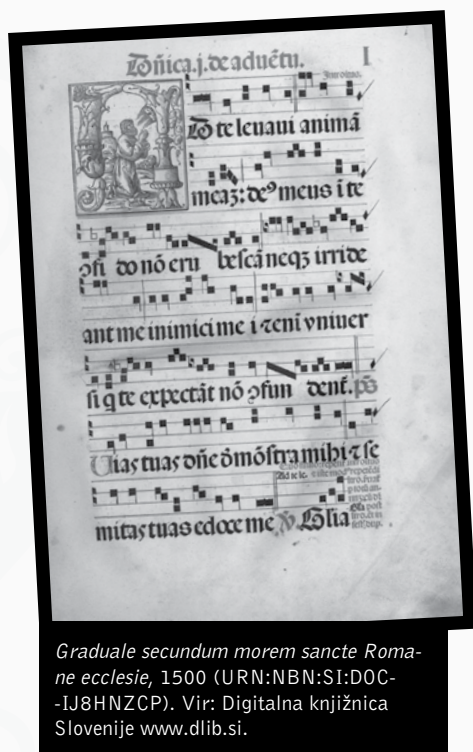 Dñica.j.de aduētu. I
Introitus.
AD te leuaui animā
meaȝ: de⁹ meus ī te
ꝯfi do nō eru bescā neqȝ irride
ant me inimici me i ⁊ enī vniuer
si q te expectāt nō ꝯfun dent̄. p̄s
Uias tuas dñe dmōstra mihi ⁊ se
Ad te le.
mitas tuas edoce me ℣. Glīa
Graduale secundum morem sancte Roma-
ne ecclesie, 1500 (URN:NBN:SI:DOC-
-IJ8HNZCP). Vir: Digitalna knjižnica
Slovenije www.dlib.si.